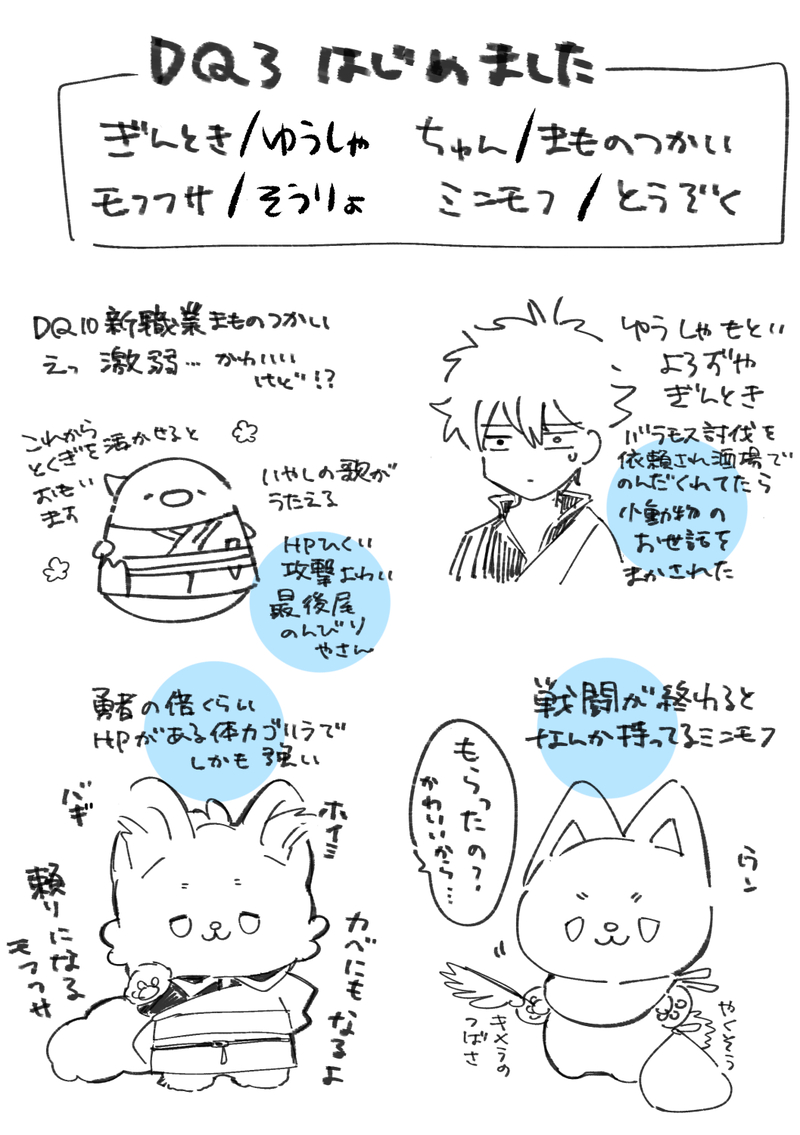 DQ3 はじめました
ぎんとき/ゆうしゃ ちゅん/まものつかい
モフフサ/そうりょ ミニモフ/とうぞく
DQ10 新職業まものつかい
えっ 激弱… かわいい
けど!?
これから
とくぎを活かせると
おもい
ます
いやしの歌が
うたえる
HPひくい
攻撃よわい
最後尾
のんびり
やさん
ゆうしゃもとい
よろずや
ぎんとき
バラモス討伐を
依頼され酒場で
のんだくれてたら
小動物の
お世話を
まかされた
勇者の倍くらい
HPがある体力ゴリラで
しかも強い
バギ
ホイミ
頼りになる
モフフサ
カベにもなるよ
戦闘が終わると
なんか持ってるミニモフ
もらったの?
かわいいから…
ウン
キメラの
つばさ
やくそう